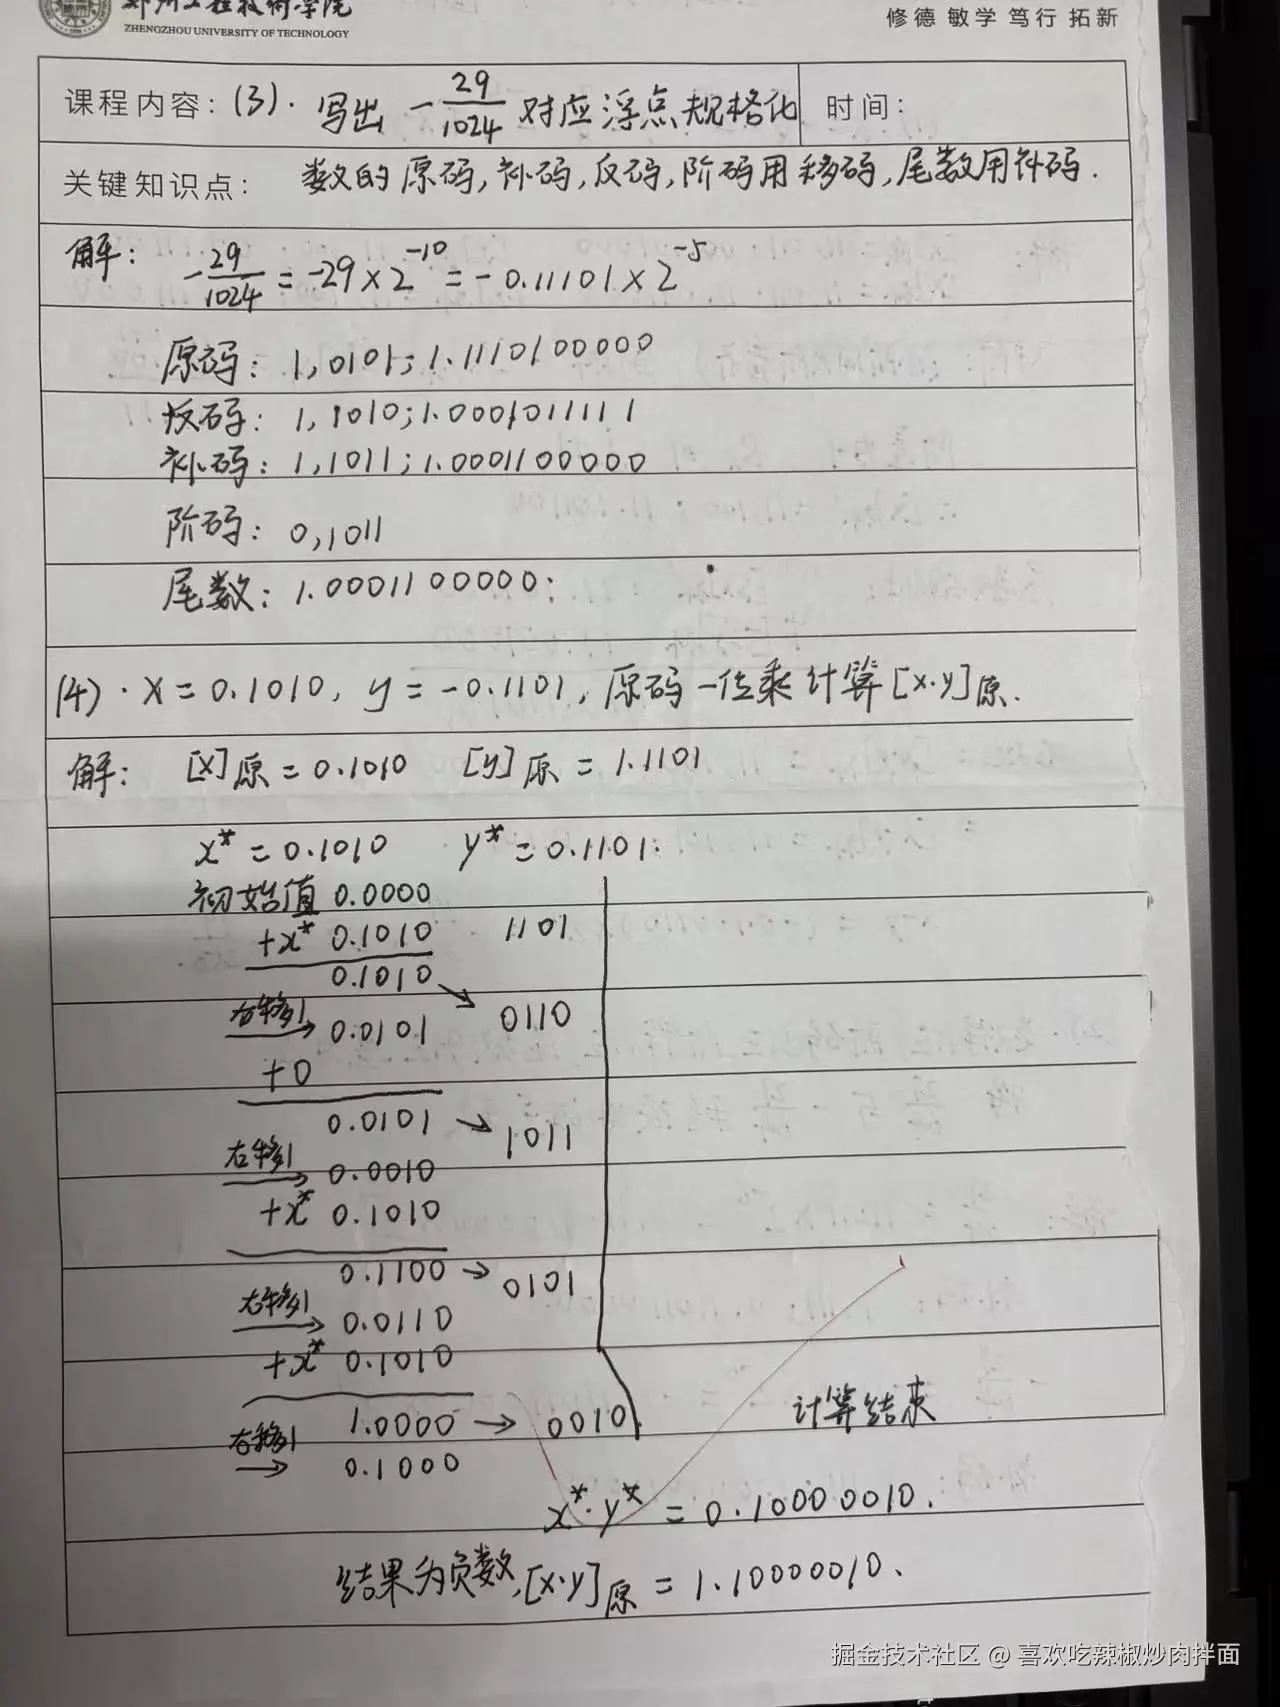 郑州工程技术学院
ZHENGZHOU UNIVERSITY OF TECHNOLOGY
修德 敏学 笃行 拓新
课程内容：(3). 写出 -29/1024 对应浮点规格化
时间：
关键知识点： 数的原码,补码,反码,阶码用移码,尾数用补码.
解： -29/1024 = -29×2^-10 = -0.11101×2^-5
原码： 1,0101;1.1110100000
反码： 1,1010;1.0001011111
补码： 1,1011;1.0001100000
阶码： 0,1011
尾数： 1.0001100000;
(4). x=0.1010, y=-0.1101, 原码一位乘计算[x·y]原.
解： [x]原=0.1010 [y]原=1.1101
x*=0.1010 y*=0.1101.
初始值 0.0000
+x* 0.1010 1101
0.1010
右移1 → 0.0101 0110
+0
0.0101 → 1011
右移1 → 0.0010
+x* 0.1010
0.1100 → 0101
右移1 → 0.0110
+x* 0.1010
1.0000 → 0010. 计算结束
右移1 → 0.1000
x*·y* = 0.10000010.
结果为负数,[x·y]原=1.10000010.
掘金技术社区 @ 喜欢吃辣椒炒肉拌面